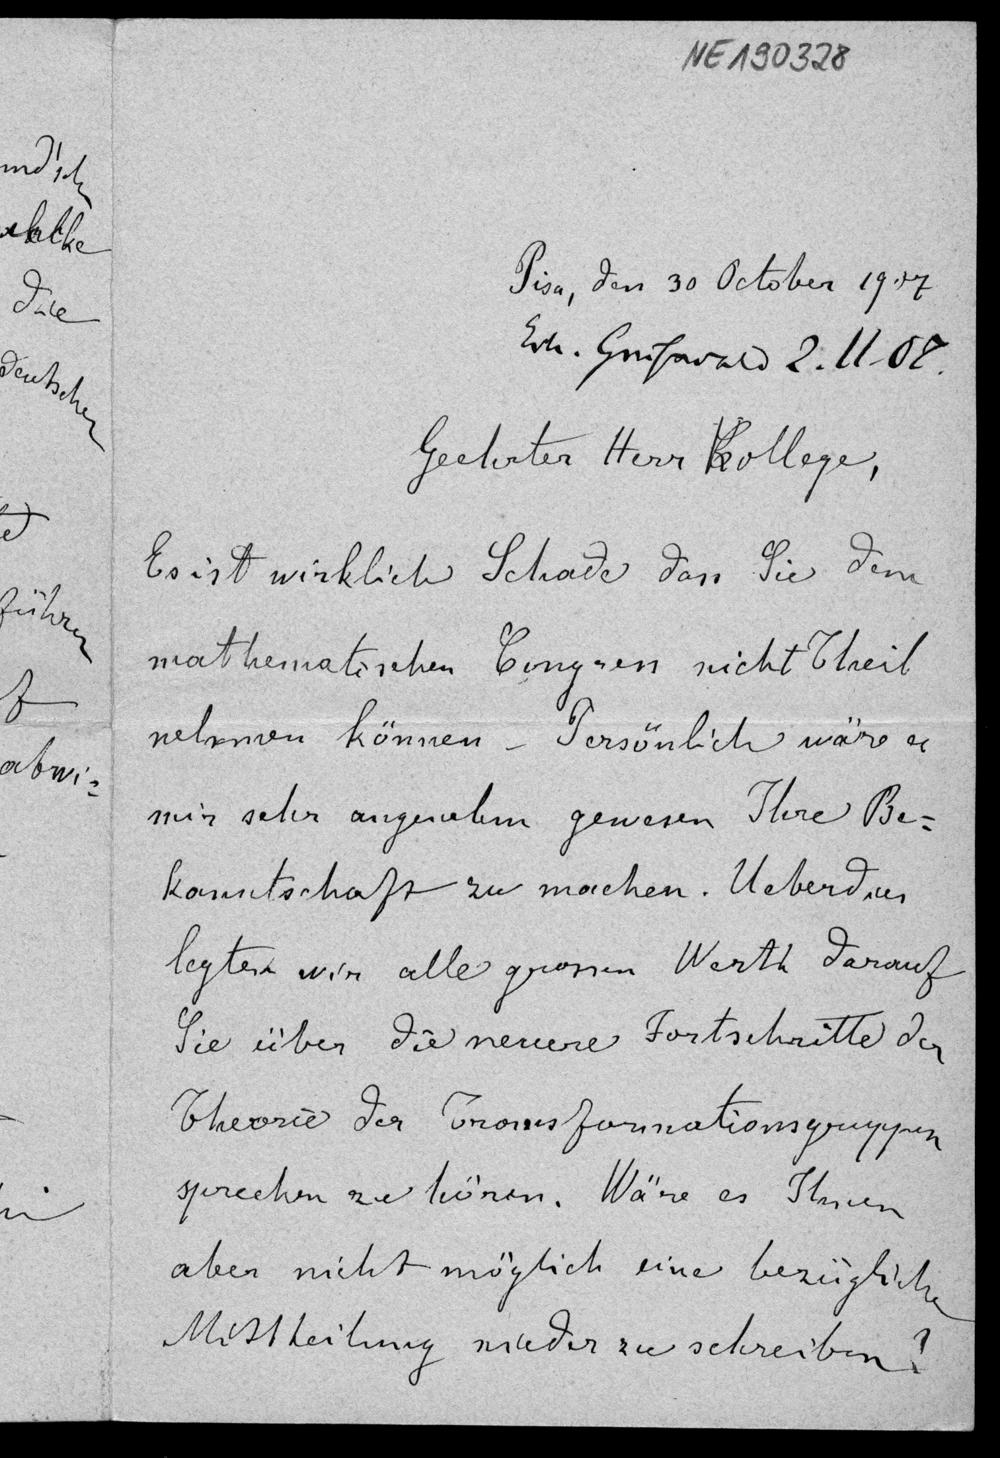 NE190328
Pisa, den 30 October 1907
Erh. Greifswald 2. 11. 07.
Geehrter Herr Kollege,
Es ist wirklich Schade dass Sie dem
mathematischen Congress nicht Theil
nehmen können – Persönlich wäre es
mir sehr angenehm gewesen Ihre Be=
kanntschaft zu machen. Ueberdies
legten wir alle grossen Werth darauf
Sie über die neuere Fortschritte der
Theorie der Transformationsgruppen
sprechen zu hören. Wäre es Ihnen
aber nicht möglich eine bezügliche
Mittheilung nieder zu schreiben?
die
deutschen
führen
abwi=